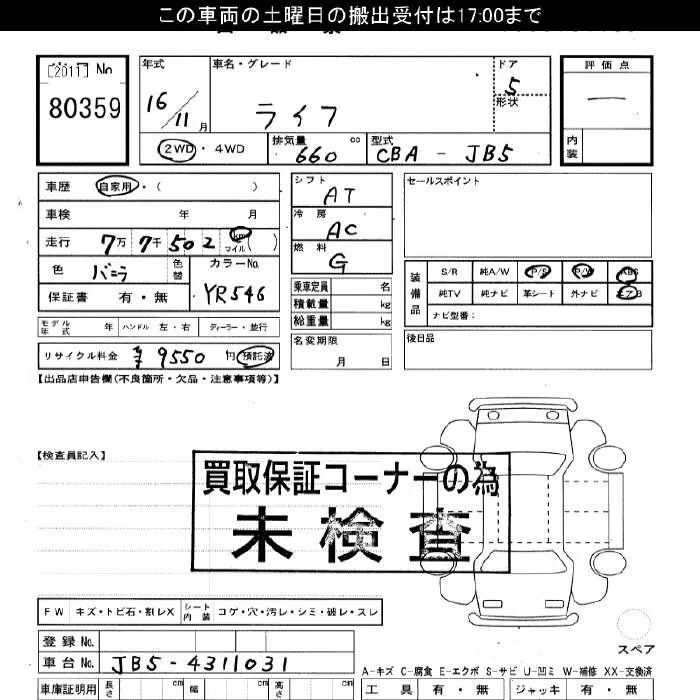 この車両の土曜日の搬出受付は17:00まで
[2011] No
80359
年式
16/11月
車名・グレード
ライフ
ドア
5
形状
評価点
—
内装
2WD・4WD
排気量
660 cc
型式
CBA - JB5
車歴 自家用・( )
車検 年 月
走行 7万 7千 502 km マイル ( )
色 バニラ 色替
カラーNo.
YR546
保証書 有・無
モデル年式 年 ハンドル 左・右 ディーラー・並行
リサイクル料金 ¥ 9550 円 預託済
シフト
AT
冷房
AC
燃料
G
乗車定員 名
積載量 kg
総重量 kg
名変期限
月 日
セールスポイント
装備品
S/R 純A/W P/S P/W ABS
純TV 純ナビ 革シート 外ナビ エアB
ナビ型番:
後日品
【出品店申告欄(不良箇所・欠品・注意事項等)】
【検査員記入】
買取保証コーナーの為
未検査
FW キズ・トビ石・割レX シート内装 コゲ・穴・汚レ・シミ・破レ・スレ
登録No.
車台No. JB5-4311031
車庫証明用 長さ cm 幅 cm 高さ cm
スペア
A-キズ C-腐食 E-エクボ S-サビ U-凹ミ W-補修 XX-交換済
工具 有・無 ジャッキ 有・無